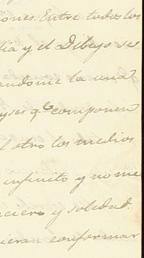 iones. Entre todos los
lia y el Dibujo se
andome la una
yses qe componen
l otro los medios
infinito y no me
acuero y soledad.
ieran conformar